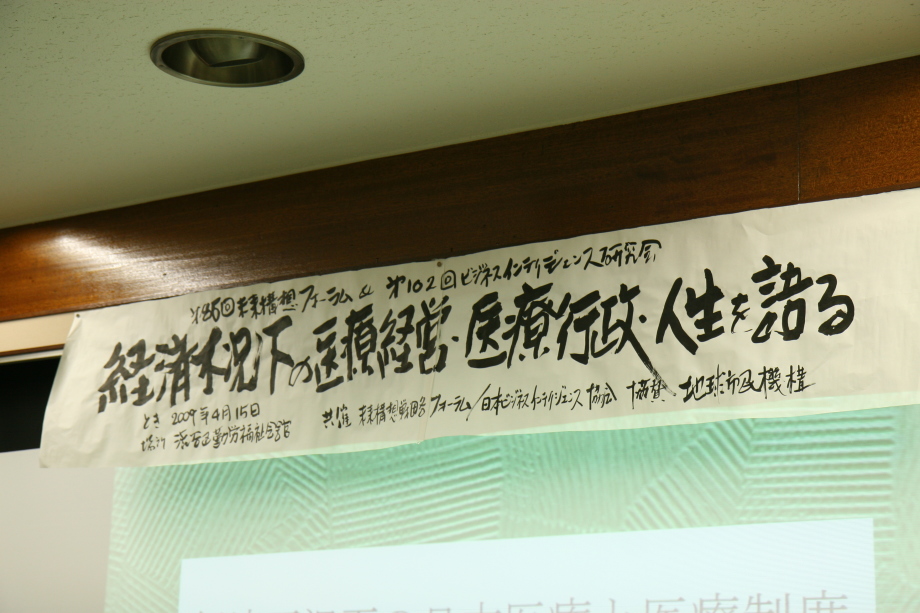 第86回 未来構想フォーラム & 第102回ビジネスインテリジェンス研究会
経済不況下の医療経営・医療行政・人生を語る
とき 2009年4月15日 共催 未来構想戦略フォーラム/日本ビジネスインテリジェンス協会 協賛 地球市民機構
場所 港区立勤労福祉会館
医療と医療制度